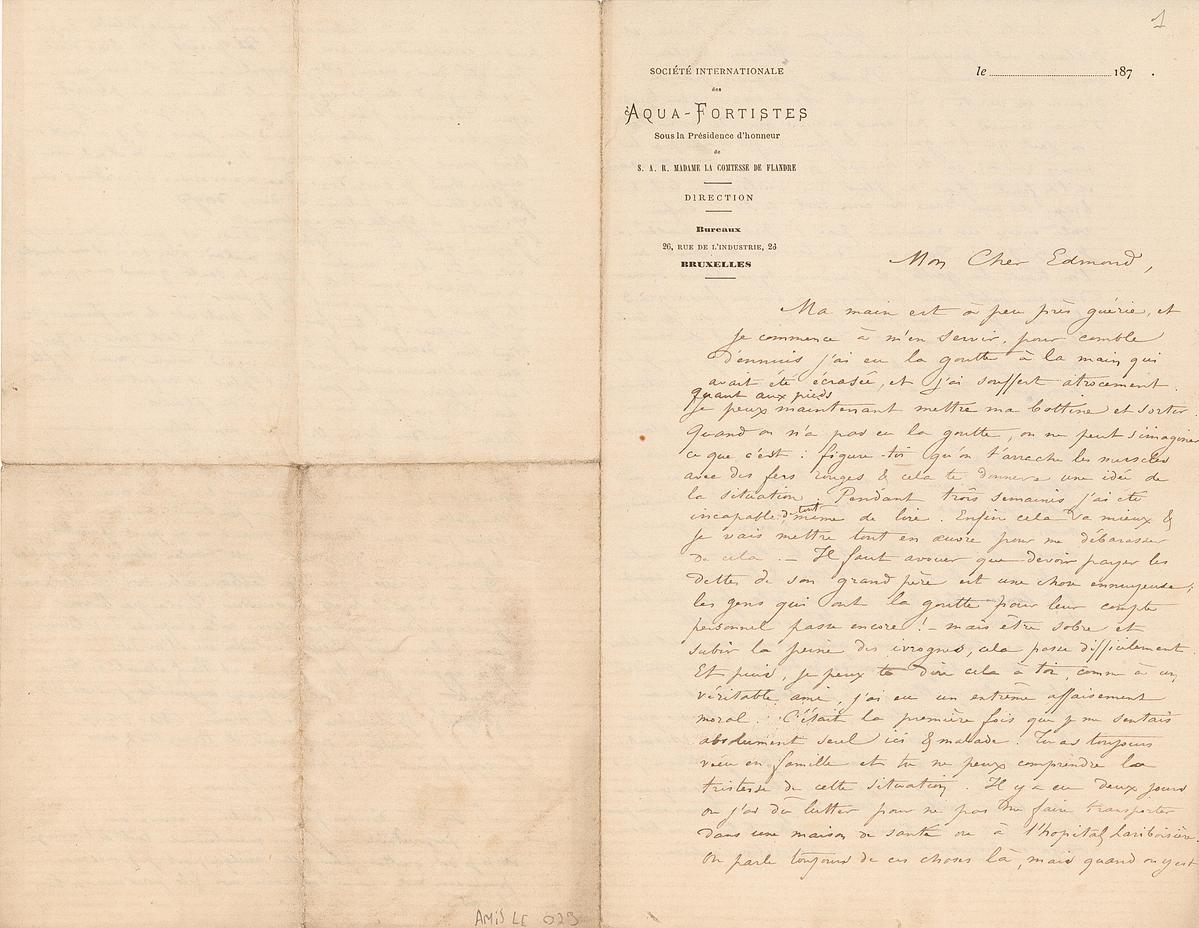 1
SOCIÉTÉ INTERNATIONALE
des
AQUA-FORTISTES
Sous la Présidence d'honneur
de
S. A. R. MADAME LA COMTESSE DE FLANDRE
DIRECTION
Bureaux
26, RUE DE L'INDUSTRIE, 26
BRUXELLES
le 187 .
Mon Cher Edmond,
Ma main est à peu près guérie, et
je commence à m'en servir, pour comble
d'ennuis j'ai eu la goutte à la main qui
avait été écrasée, et j'ai souffert atrocement.
quant aux pieds
je peux maintenant mettre ma bottine et sortir
Quand on n'a pas eu la goutte, on ne peut s'imaginer
ce que c'est : figure-toi qu'on t'arrache les muscles
avec des fers rouges & cela te donnera une idée de
la situation. Pendant trois semaines j'ai été
incapable même de lire. Enfin cela va mieux &
je vais mettre tout en œuvre pour me débarasser
de cela. — Il faut avouer que devoir payer les
dettes de son grand père est une chose ennuyeuse,
les gens qui ont la goutte pour leur compte
personnel passe encore ! — mais être sobre et
subir la peine des ivrognes, cela passe difficilement.
Et puis, je peux te dire cela à toi, comme à un
véritable ami, j'ai eu un extrême affaisement
moral. C'était la première fois que je me sentais
absolument seul ici & malade. Tu as toujours
vécu en famille et tu ne peux comprendre la
tristesse de cette situation. Il y a eu deux jours
où j'ai dû lutter pour ne pas me faire transporter
dans une maison de santé ou à l'hopital Lariboisière.
On parle toujours de ces choses là, mais quand on y est
AMIS LE 029